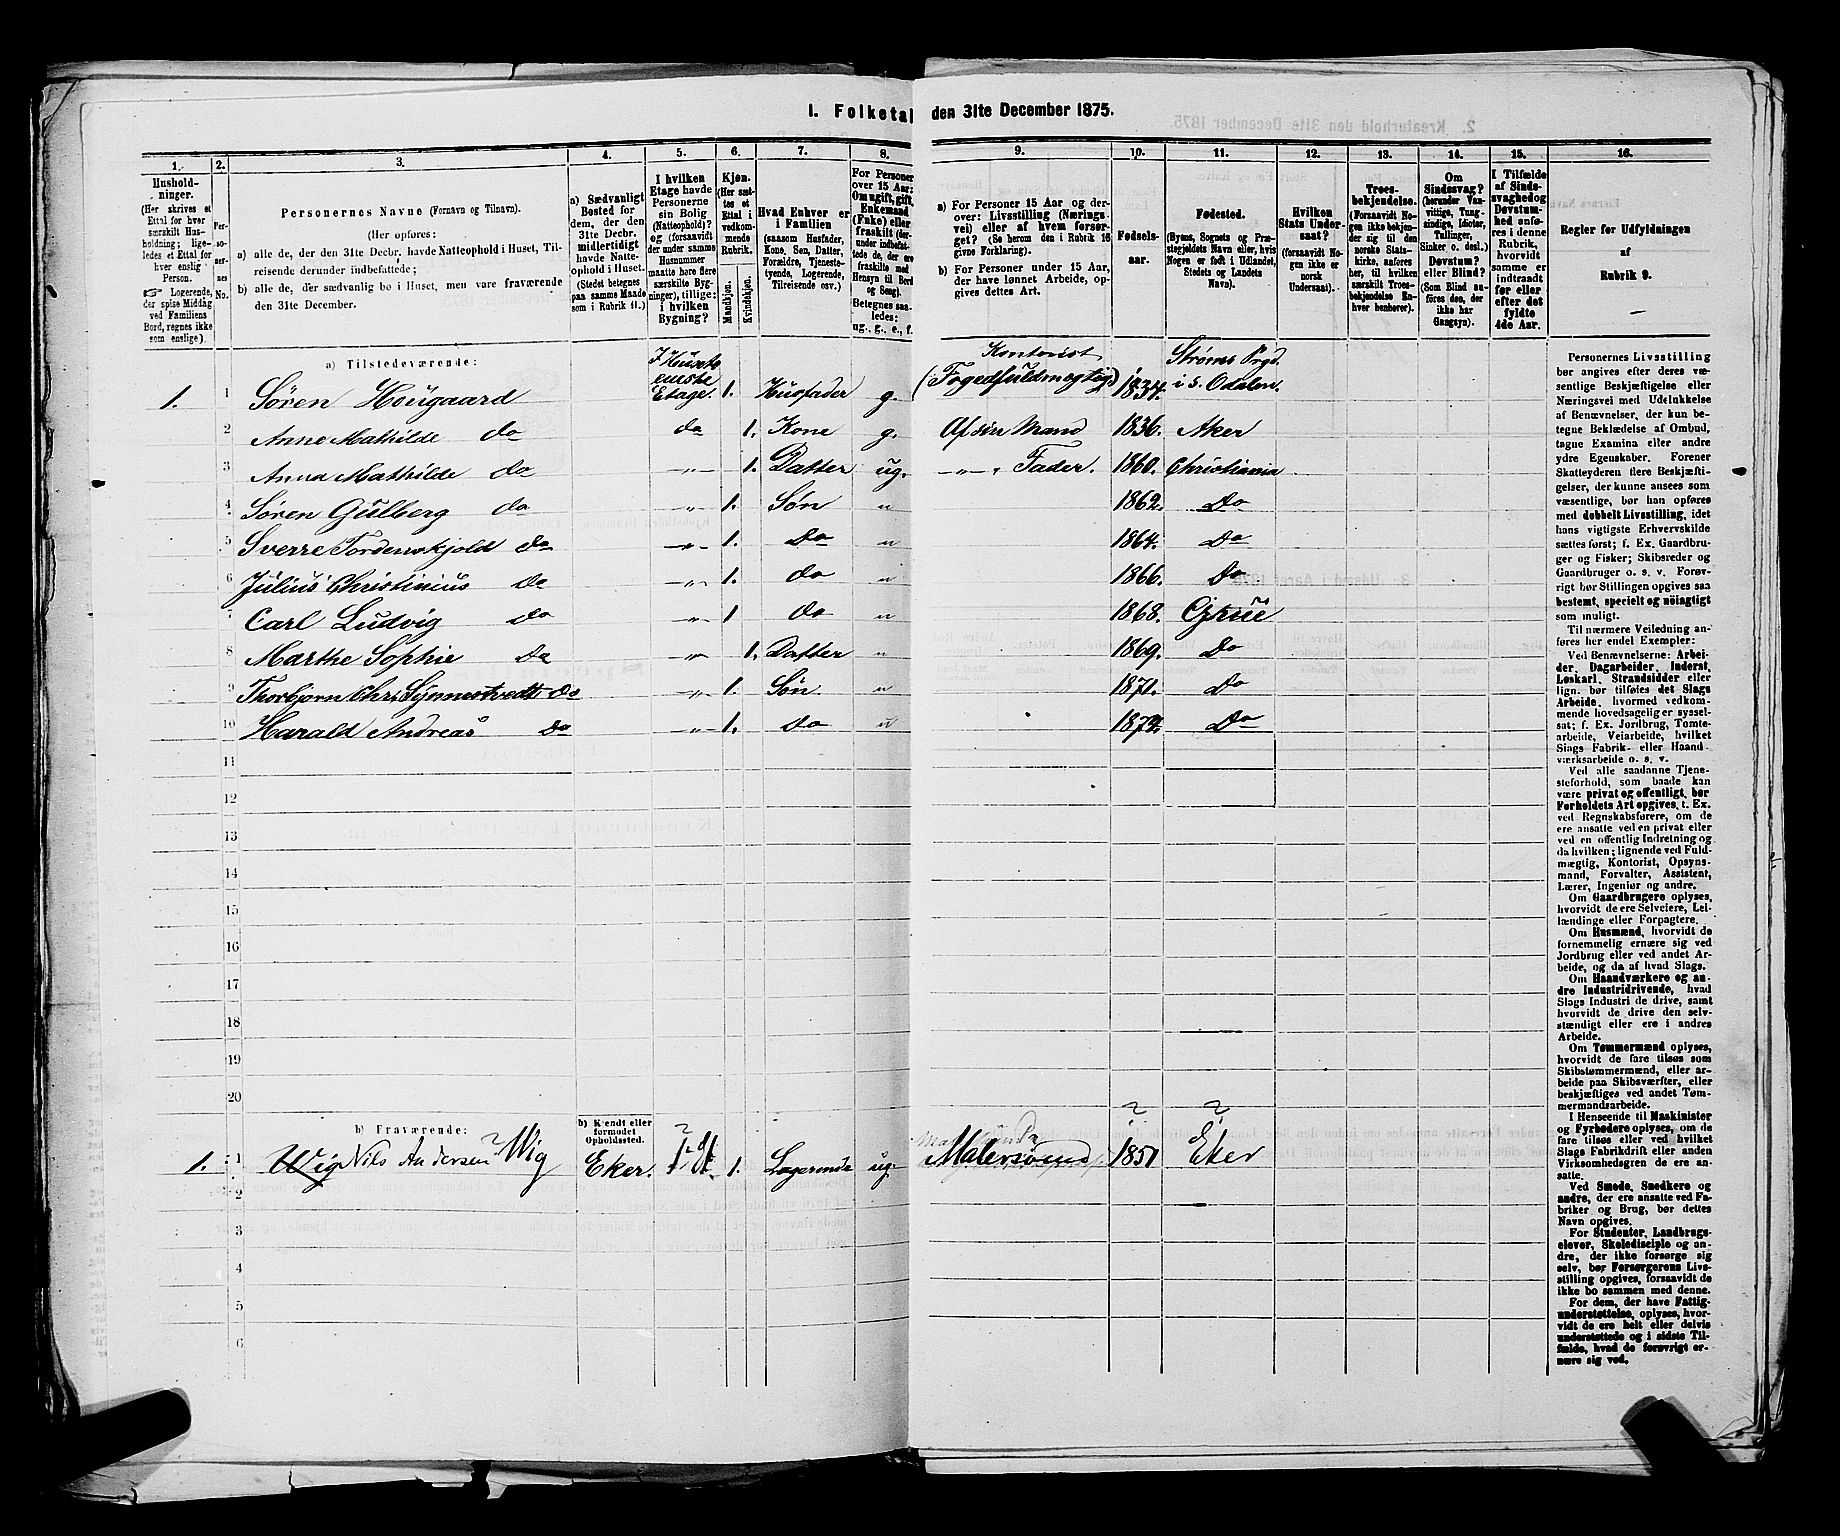 1. Folketal den 31te December 1875.
1. 2. 3. 4. 5. 6. 7. 8. 9. 10. 11. 12. 13. 14. 15. 16.
Hushold-
ninger.
(Her skrives et
Ettal for hver
særskilt Hus-
holdning; lige-
ledes et Ettal for
hver enslig
Person.
Logerende,
der spise Middag
ved Familiens
Bord, regnes ikke
som enslige).
Per-
so-
ner-
nes
No.
Personernes Navne (Fornavn og Tilnavn).
(Her opføres:
a) alle de, der den 31te Decbr. havde Natteophold i Huset, Til-
reisende derunder indbefattede;
b) alle de, der sædvanlig bo i Huset, men vare fraværende
den 31te December.
a) Sædvanligt
Bosted for
dem, der den
31te Decbr.
midlertidigt
havde Natte-
ophold i Huset.
(Stedet betegnes
paa samme Maade
som i Rubrik 11.)
I hvilken
Etage havde
Personerne
sin Bolig
(Natteophold)?
og (forsaavidt
der under samme
Husnummer
maatte høre flere
særskilte Byg-
ninger), tillige:
i hvilken
Bygning?
Kjøn.
(Her sæt-
tes et
Ettal i
vedkom-
mende
Rubrik.
Mandkjøn.
Kvindekjøn.
Hvad Enhver er
i Familien
(saasom Husfader,
Kone, Søn, Datter,
Forældre, Tjeneste-
tyende, Logerende,
Tilreisende osv.)
For Personer
over 15 Aar:
Om ugift, gift,
Enkemand
(Enke) eller
fraskilt (der-
under indbefat-
tede de, der ere
fraskilte med
Hensyn til Bord
og Seng).
Betegnes saa-
ledes:
ug., g., e., f.
a) For Personer 15 Aar og der-
over: Livsstilling (Nærings-
vei) eller af hvem forsør-
get? (Se herom den i Rubrik 16
givne Forklaring).
b) For Personer under 15 Aar,
der have lønnet Arbeide, op-
gives dettes Art.
Fødsels-
aar.
Fødested.
(Byens, Sognets og Præ-
stegjeldets Navn eller, hvis
Nogen er født i Udlandet,
Stedets og Landets
Navn).
Hvilken
Stats Under-
saat?
(forsaavidt No-
gen ikke er
norsk
Undersaat).
Troes-
bekjendelse.
(Forsaavidt No-
gen ikke bekjen-
der sig til den
norske Stats-
kirke, anføres
her, til hvilken
særskilt Troes-
bekjendelse En-
hver henhører).
Om
Sindssvag?
(herunder Van-
vittige, Tung-
sindige, Idioter,
Tullinger,
Sinker o. desl.)
Døvstum?
eller Blind?
(Som Blind an-
føres den, der
ikke har
Gangsyn).
I Tilfælde
af Sinds-
svaghed og
Døvstum-
hed anfø-
res i denne
Rubrik,
hvorvidt
samme er
indtraadt
før eller
efter det
fyldte
4de Aar.
Regler for Udfyldningen
af
Rubrik 9.
a) Tilstedeværende:
1. 1 Søren Hougaard I Husets eneste Etage. 1. Husfader g. Kontorist (Fogedfuldmægtig) 1834. Strøms Prgd. i S. Odalen.
2 Anne Mathilde do do 1. Kone g. Af sin Mand 1836. Aker
3 Anna Mathilde do „ 1. Datter ug. „ „ Fader. 1860. Christiania
4 Søren Gulberg do „ 1. Søn „ 1862. Do
5 Sverre Tordenskjold do „ 1. Do „ 1864. Do
6 Julius Christinius do „ 1. do „ 1866. Do
7 Carl Ludvig do „ 1 do „ 1868. Grue
8 Marthe Sophie do „ 1. Datter „ 1869. Do
9 Thorbjørn Chr. Synnestvedt do „ 1. Søn „ 1871. Do
10 Harald Andreas do „ 1. do „ 1874. Do
11
12
13
14
15
16
17
18
19
20
b) Fraværende:
b) Kjendt eller
formodet
Opholdssted.
1. 1 Wig Nils Andersen Wig Eker. 1. Logerende ug. Malersvend 1851 Eker
2
3
4
5
6
Personernes Livsstilling
bør angives efter deres væ-
sentlige Beskjæftigelse eller
Næringsvei med Udelukkelse
af Benævnelser, der kun be-
tegne Beklædelse af Ombud,
tagne Examina eller andre
ydre Egenskaber. Forener
Skatteyderen flere Beskjæfti-
gelser, der kunne ansees som
væsentlige, bør han opføres
med dobbelt Livsstilling, idet
hans vigtigste Erhvervskilde
sættes først; f. Ex. Gaardbru-
ger og Fisker; Skibsreder og
Gaardbruger o. s. v. Forøv-
rigt bør Stillingen opgives saa
bestemt, specielt og nøiagtigt
som muligt.
Til nærmere Veiledning an-
føres her endel Exempler:
Ved Benævnelserne: Arbei-
der, Dagarbeider, Inderst,
Løskarl, Strandsidder eller
lign. bør tilføies det Slags
Arbeide, hvormed vedkom-
mende hovedsagelig er syssel-
sat; f. Ex. Jordbrug, Tomte-
arbeide, Veiarbeide, hvilket
Slags Fabrik- eller Haand-
værksarbeide o. s. v.
Ved alle saadanne Tjene-
steforhold, som baade kan
være privat og offentligt, bør
Forholdets Art opgives, t. Ex.
ved Regnskabsførere, om de
ere ansatte ved en privat eller
ved en offentlig Indretning og
da hvilken; lignende ved Fuld-
mægtig, Kontorist, Opsyns-
mand, Forvalter, Assistent,
Lærer, Ingeniør og andre.
Om Gaardbrugere oplyses,
hvorvidt de ere Selveiere, Lei-
lændinge eller Forpagtere.
Om Husmænd, hvorvidt de
fornemmelig ernære sig ved
Jordbrug eller ved andet Ar-
beide, og da af hvad Slags.
Om Haandværkere og an-
dre Industridrivende, hvad
Slags Industri de drive, samt
hvorvidt de drive den selv-
stændigt eller ere i andres
Arbeide.
Om Tømmermænd oplyses,
hvorvidt de fare tilsøs som
Skibstømmermænd, eller ar-
beide paa Skibsværfter, eller
beskjæftiges ved andet Tøm-
mermandsarbeide.
I Henseende til Maskinister
og Fyrbødere oplyses, om de
fare tilsøs eller ved hvilket
Slags Fabrikdrift eller anden
Virksomhed de ere an-
satte.
Ved Smede, Snedkere og
andre, der ere ansatte ved Fa-
briker og Brug, bør dettes
Navn opgives.
For Studenter, Landbrugs-
elever, Skoledisciple og an-
dre, der ikke forsørge sig
selv, bør Forsørgerens Livs-
stilling opgives, forsaavidt de
ikke bo sammen med denne.
For dem, der have Fattig-
understøttelse, oplyses, hvor-
vidt de ere helt eller delvis
understøttede og i sidste Til-
fælde, hvad de forøvrigt er-
nære sig ved.